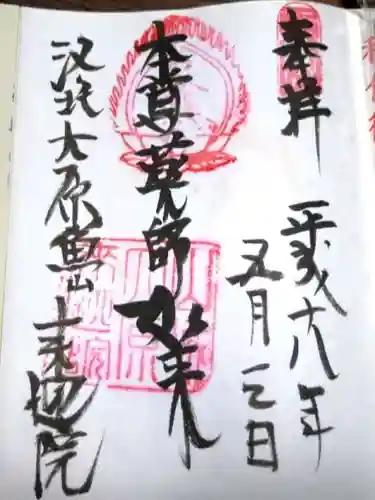 奉拝
平成十八年
五月三日
本尊薬師如来
洛北大原魚山来迎院